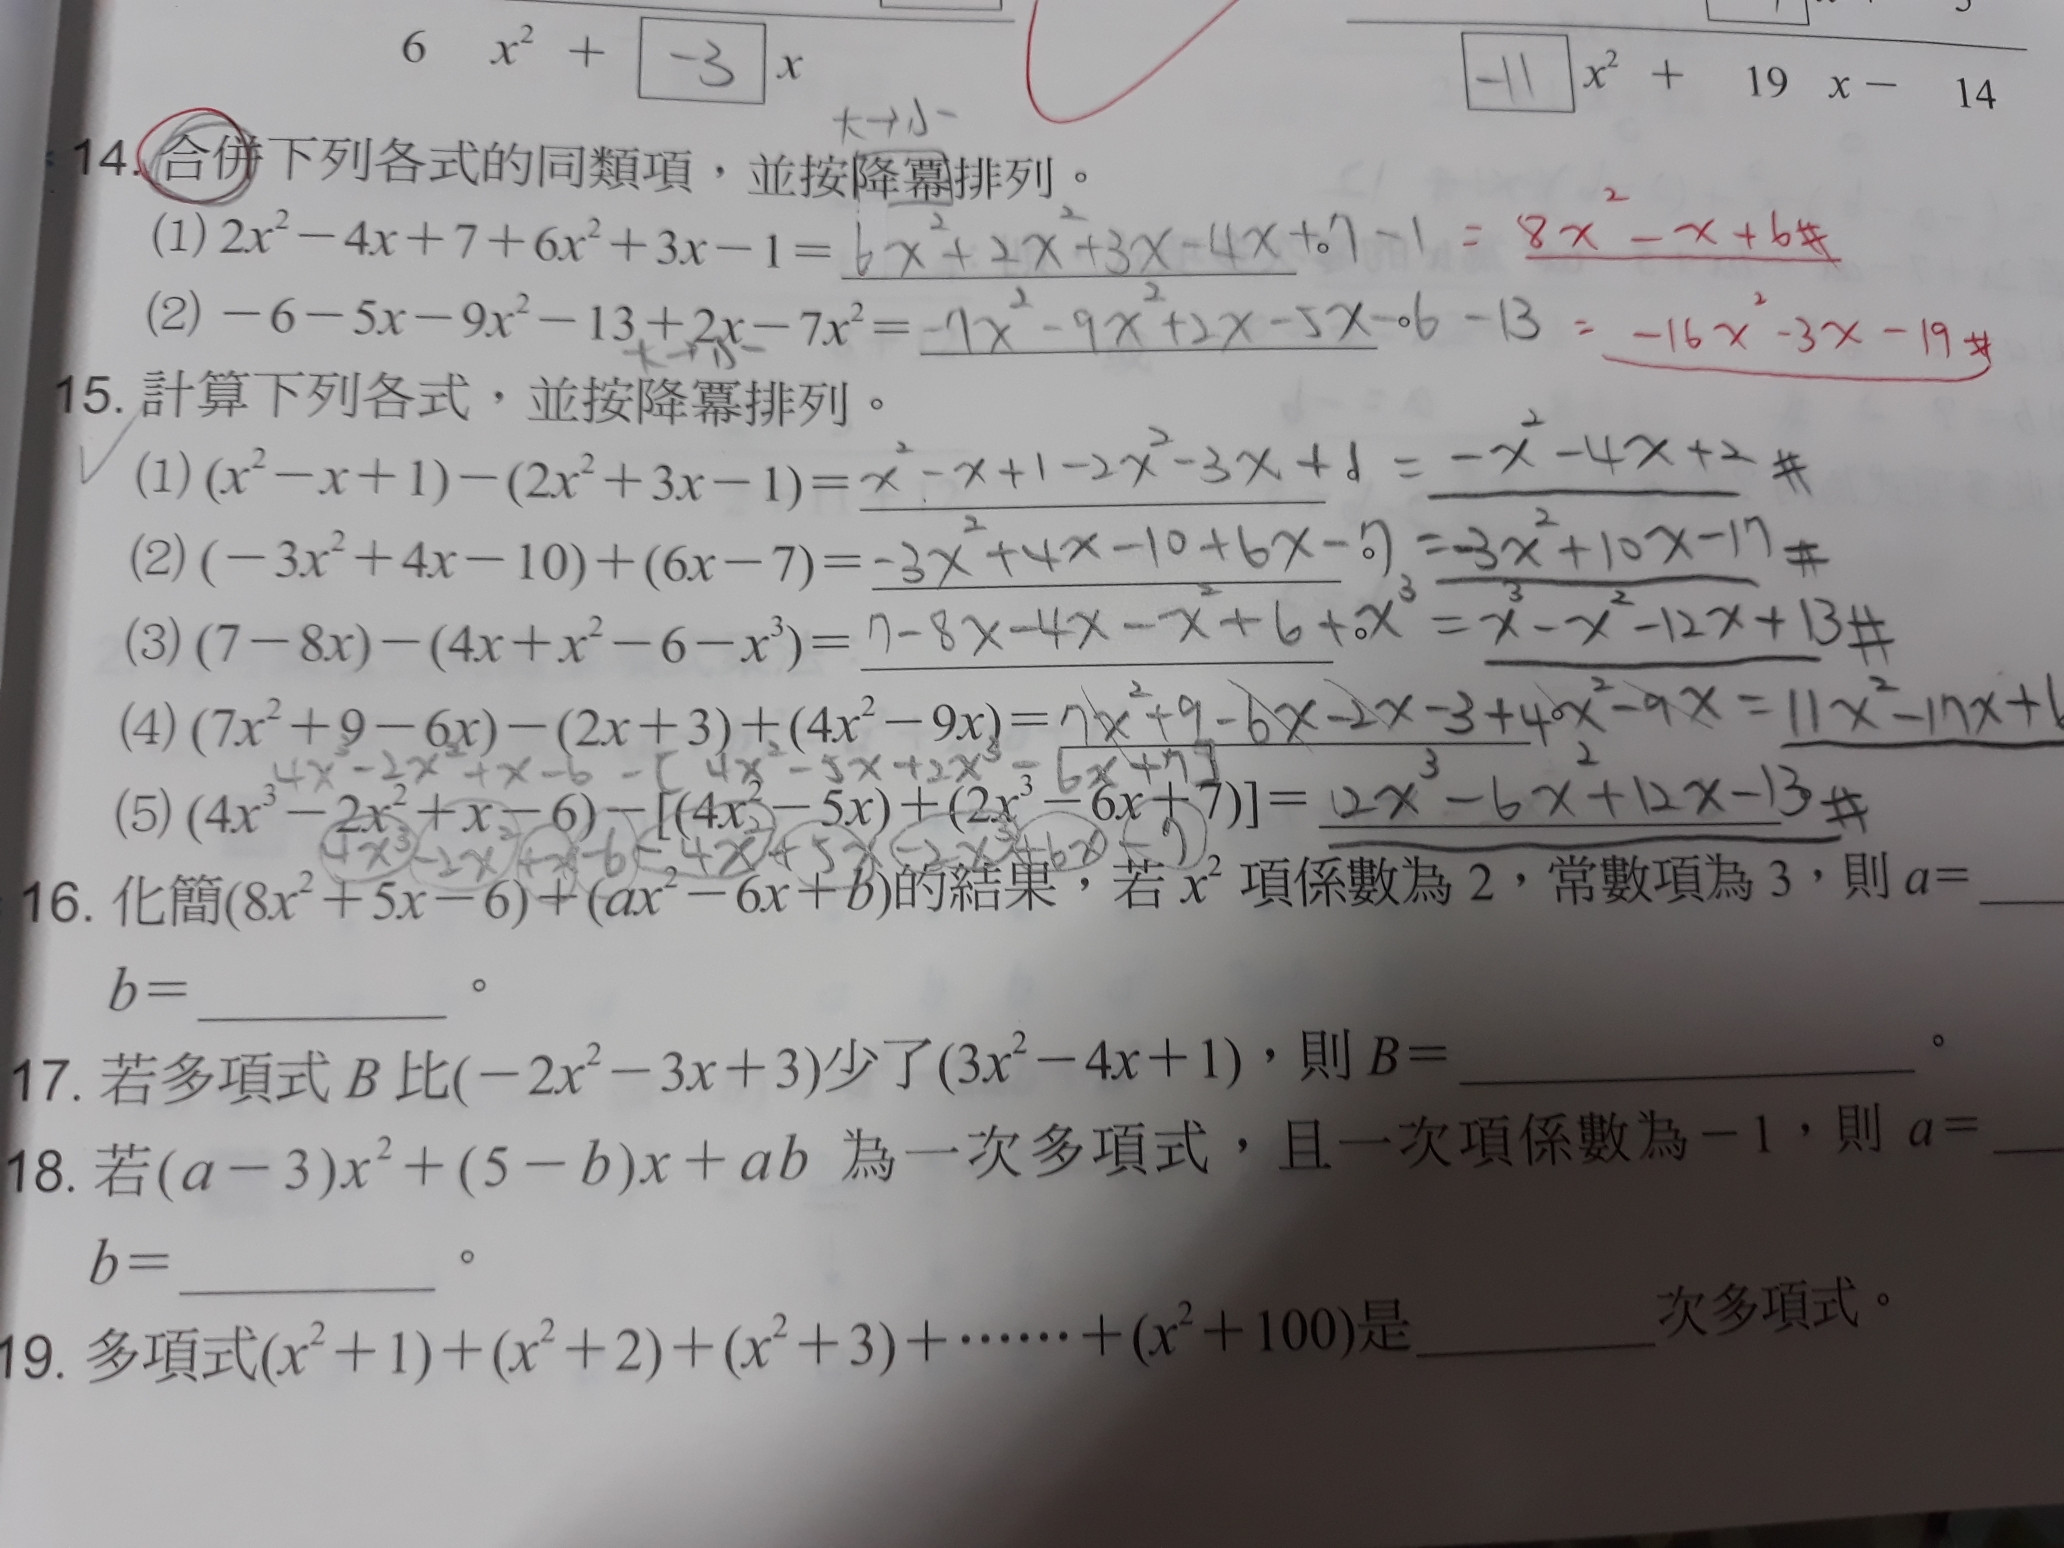 6 x² + -3 x
-11 x² + 19 x − 14
大→小
14. 合併下列各式的同類項，並按降冪排列。
(1) 2x²−4x+7+6x²+3x−1= 6x²+2x²+3x-4x+7-1 = 8x²-x+6#
(2) −6−5x−9x²−13+2x−7x²= -7x²-9x²+2x-5x-6-13 = -16x²-3x-19#
大→小
15. 計算下列各式，並按降冪排列。
(1) (x²−x+1)−(2x²+3x−1)= x²-x+1-2x²-3x+1 = -x²-4x+2 #
(2) (−3x²+4x−10)+(6x−7)= -3x²+4x-10+6x-7 = -3x²+10x-17 #
(3) (7−8x)−(4x+x²−6−x³)= 7-8x-4x-x²+6+x³ = x³-x²-12x+13#
(4) (7x²+9−6x)−(2x+3)+(4x²−9x)= 7x²+9-6x-2x-3+4x²-9x = 11x²-17x+6
4x³-2x²+x-6-[4x²-5x+2x³-6x+7]
(5) (4x³−2x²+x−6)−[(4x²−5x)+(2x³−6x+7)]= 2x³-6x²+12x-13#
4x³-2x²+x-6-4x²+5x-2x³+6x-7
16. 化簡(8x²+5x−6)+(ax²−6x+b)的結果，若 x² 項係數為 2，常數項為 3，則 a=
b= 。
17. 若多項式 B 比(−2x²−3x+3)少了(3x²−4x+1)，則 B= 。
18. 若(a−3)x²+(5−b)x+ab 為一次多項式，且一次項係數為−1，則 a=
b= 。
19. 多項式(x²+1)+(x²+2)+(x²+3)+……+(x²+100)是 次多項式。